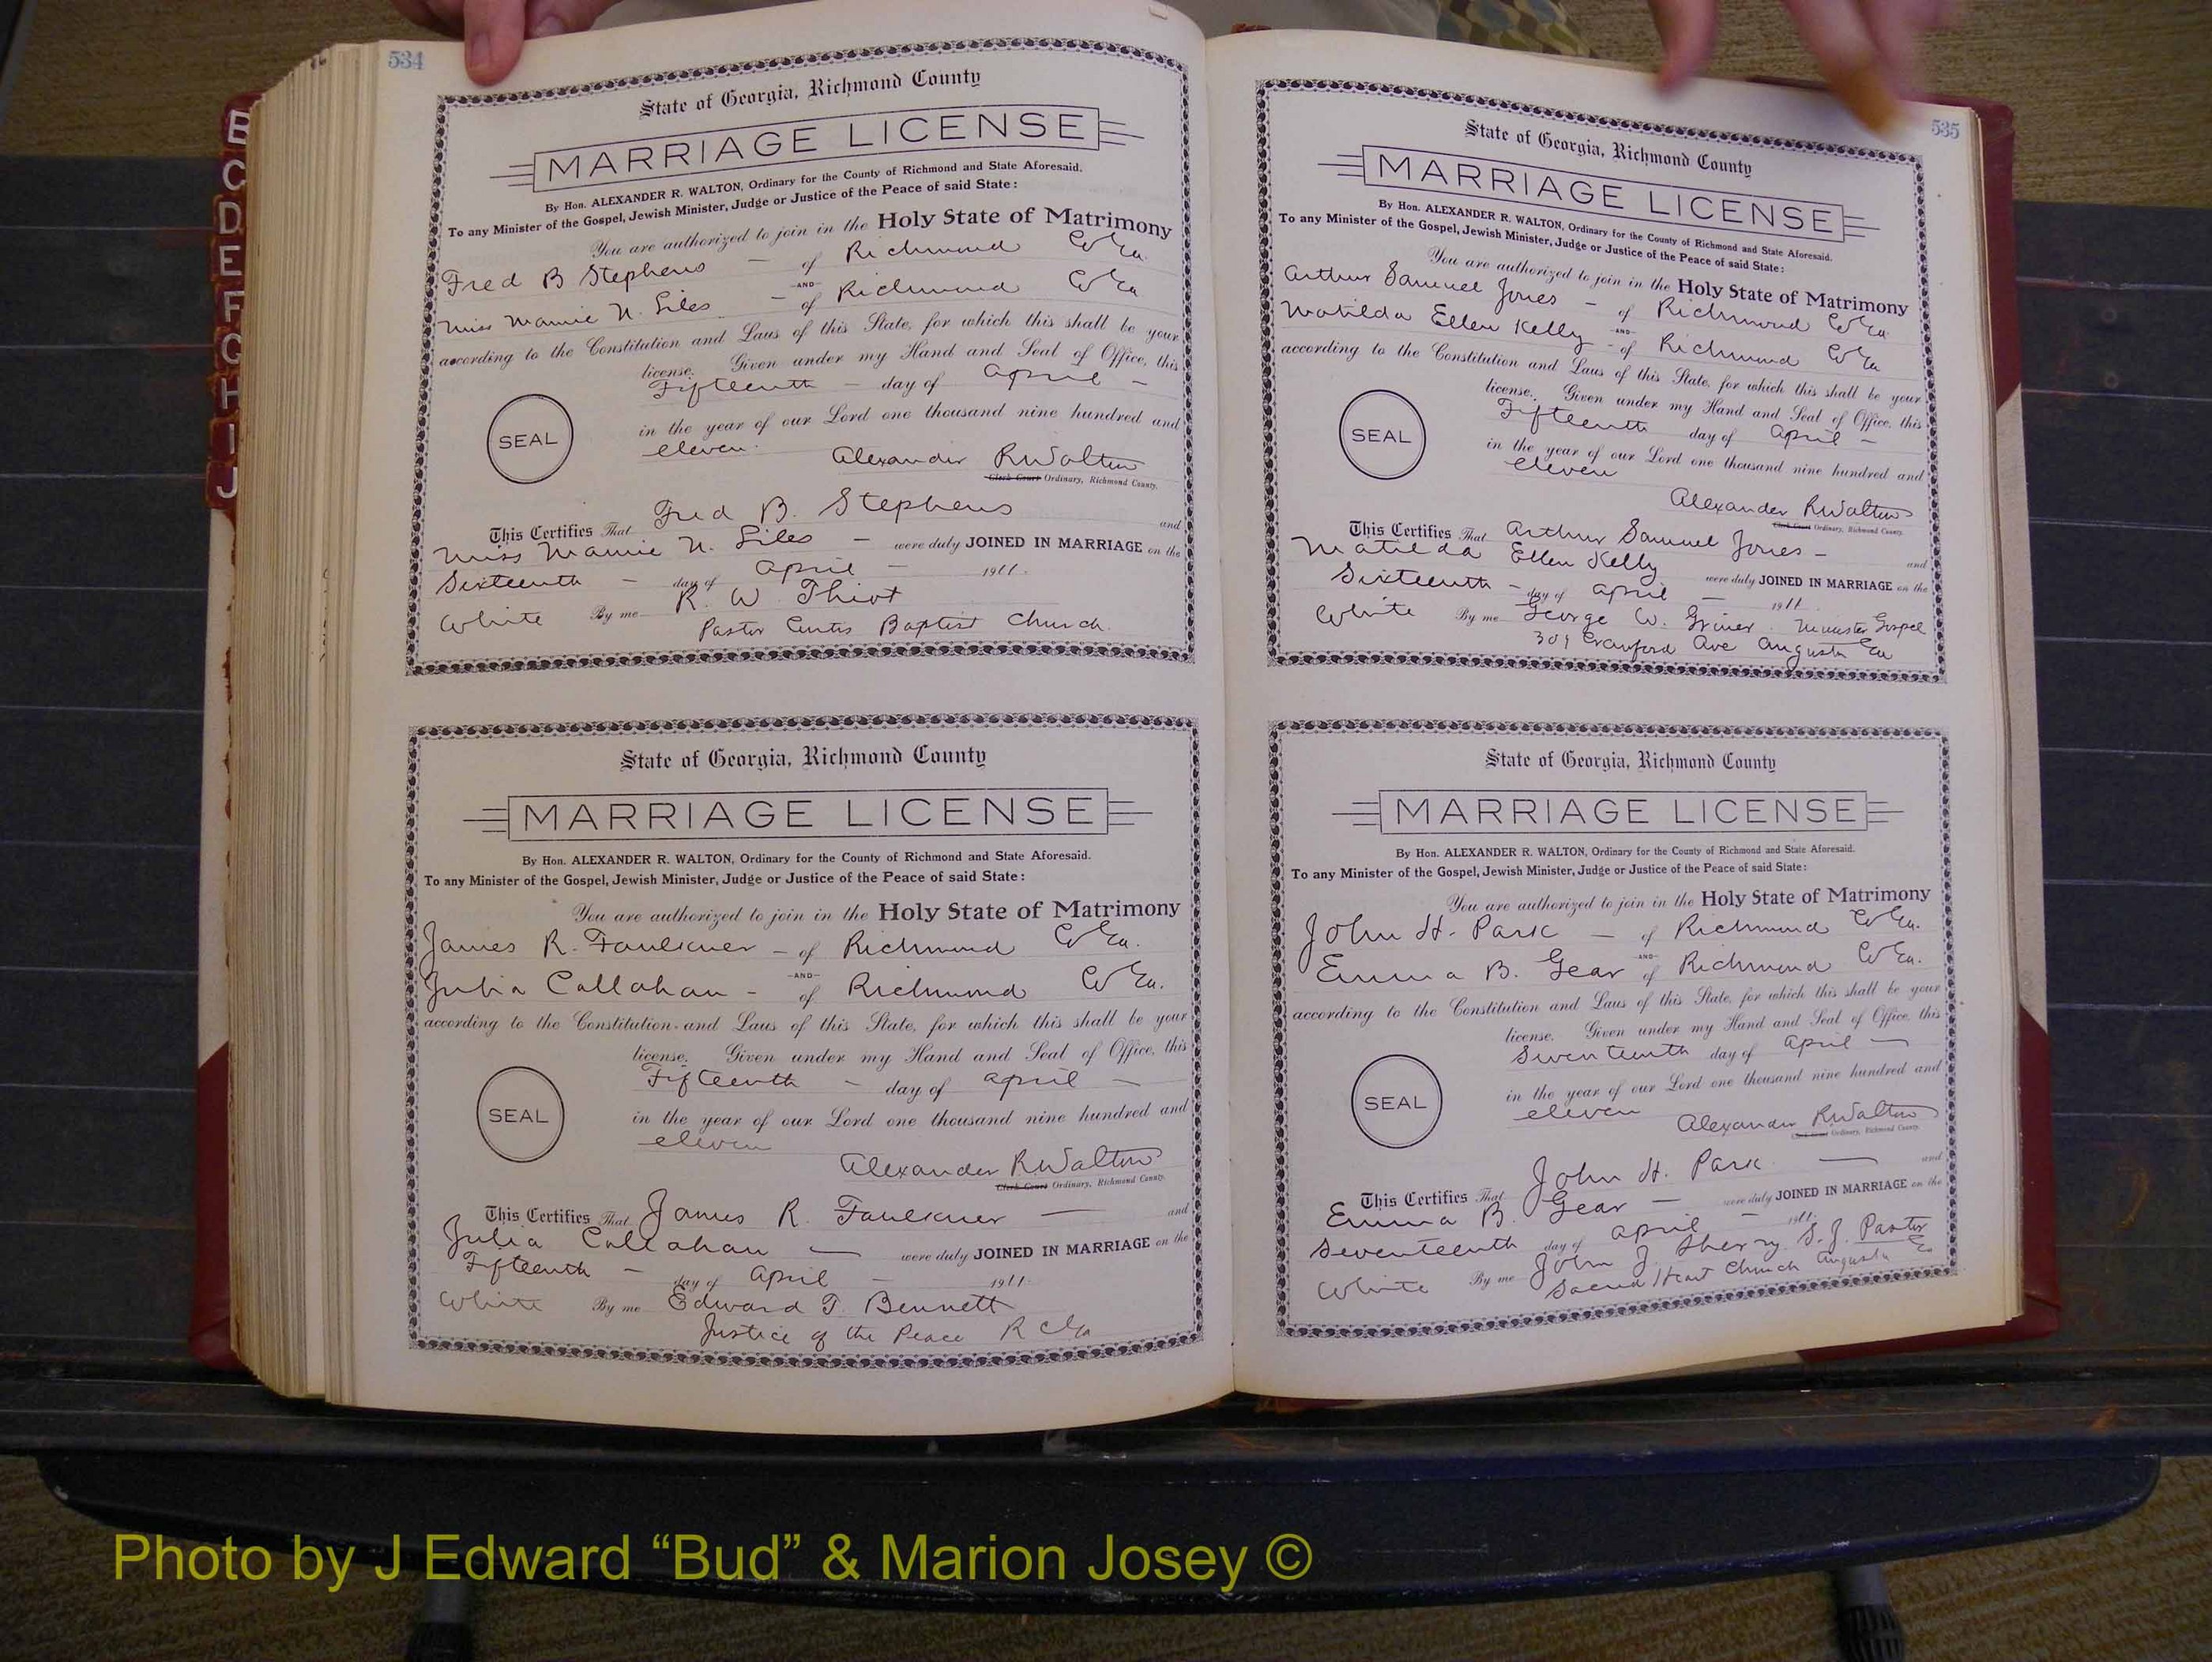 B
C
D
E
F
G
H
I
J
534
State of Georgia, Richmond County
MARRIAGE LICENSE
By Hon. ALEXANDER R. WALTON, Ordinary for the County of Richmond and State Aforesaid.
To any Minister of the Gospel, Jewish Minister, Judge or Justice of the Peace of said State:
You are authorized to join in the Holy State of Matrimony
Fred B Stephens - of Richmond Co Ga.
-AND-
Miss Mamie N. Liles - of Richmond Co Ga
according to the Constitution and Laws of this State, for which this shall be your
license. Given under my Hand and Seal of Office, this
Fifteenth - day of April -
SEAL
in the year of our Lord one thousand nine hundred and
eleven.
Alexander R Walton
Clerk Court Ordinary, Richmond County.
This Certifies That Fred B. Stephens and
Miss Mamie N. Liles - were duly JOINED IN MARRIAGE on the
Sixteenth - day of April - 1911.
White By me R. W. Thiot
Pastor Curtis Baptist Church.
State of Georgia, Richmond County
MARRIAGE LICENSE
By Hon. ALEXANDER R. WALTON, Ordinary for the County of Richmond and State Aforesaid.
To any Minister of the Gospel, Jewish Minister, Judge or Justice of the Peace of said State:
You are authorized to join in the Holy State of Matrimony
James R. Faulkner - of Richmond Co Ga.
-AND-
Julia Callahan - of Richmond Co Ga.
according to the Constitution and Laws of this State, for which this shall be your
license. Given under my Hand and Seal of Office, this
Fifteenth - day of April -
SEAL
in the year of our Lord one thousand nine hundred and
eleven
Alexander R Walton
Clerk Court Ordinary, Richmond County.
This Certifies That James R. Faulkner - and
Julia Callahan - were duly JOINED IN MARRIAGE on the
Fifteenth - day of April - 1911.
White By me Edward T. Bennett
Justice of the Peace R C Ga
535
State of Georgia, Richmond County
MARRIAGE LICENSE
By Hon. ALEXANDER R. WALTON, Ordinary for the County of Richmond and State Aforesaid.
To any Minister of the Gospel, Jewish Minister, Judge or Justice of the Peace of said State:
You are authorized to join in the Holy State of Matrimony
Arthur Samuel Jones - of Richmond Co Ga
-AND-
Matilda Ellen Kelly - of Richmond Co Ga
according to the Constitution and Laws of this State, for which this shall be your
license. Given under my Hand and Seal of Office, this
Fifteenth day of April -
SEAL
in the year of our Lord one thousand nine hundred and
eleven
Alexander R Walton
Clerk Court Ordinary, Richmond County.
This Certifies That Arthur Samuel Jones - and
Matilda Ellen Kelly were duly JOINED IN MARRIAGE on the
Sixteenth - day of April - 1911.
White By me George W. Griner. Minister Gospel
309 Crawford Ave Augusta Ga
State of Georgia, Richmond County
MARRIAGE LICENSE
By Hon. ALEXANDER R. WALTON, Ordinary for the County of Richmond and State Aforesaid.
To any Minister of the Gospel, Jewish Minister, Judge or Justice of the Peace of said State:
You are authorized to join in the Holy State of Matrimony
John H. Park - of Richmond Co Ga.
-AND-
Emma B. Gear of Richmond Co Ga.
according to the Constitution and Laws of this State, for which this shall be your
license. Given under my Hand and Seal of Office, this
Seventeenth day of April -
SEAL
in the year of our Lord one thousand nine hundred and
eleven
Alexander R Walton
Clerk Court Ordinary, Richmond County.
This Certifies That John H. Park - and
Emma B. Gear - were duly JOINED IN MARRIAGE on the
Seventeenth day of April - 1911.
White By me John J. Sherry S. J. Pastor
Sacred Heart Church Augusta Ga
Photo by J Edward “Bud” & Marion Josey ©